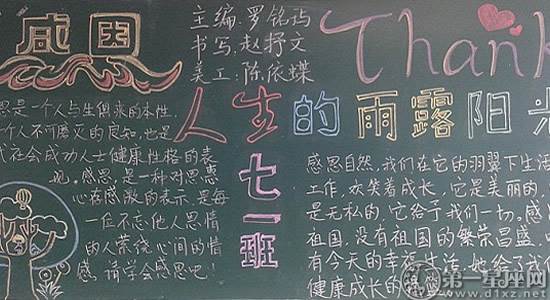 感恩
主编:罗铭玛
书写:赵抒文
美工:陈依蝶
Thank
人生的雨露阳光
七一班
恩是一个人与生俱来的本性,
个人不可磨灭的良知,也是
代社会成功人士健康性格的表
现。感恩,是一种对恩惠
心存感激的表示,是每
一位不忘他人恩情
的人萦绕心间的情
感,请学会感恩吧!
感恩自然,我们在它的羽翼下生活
工作,欢笑着成长,它是美丽的,
是无私的,它给于我们一切。感
祖国,没有祖国的繁荣昌盛,
有今天的幸福生活,她给了我们
健康成长的
第一星座网
www.d1xz.net